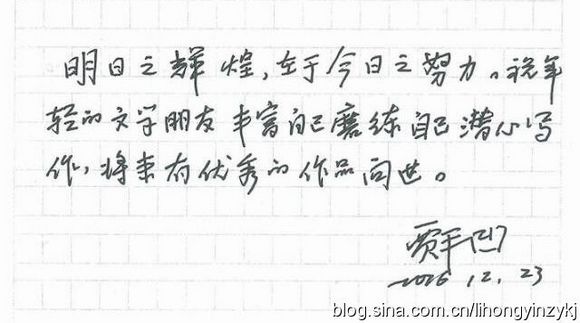 明日之辉煌,在于今日之努力。祝年
轻的文学朋友丰富自己磨练自己潜心写
作,将来有优秀的作品问世。
贾平凹
2026.12.23
blog.sina.com.cn/lihongyinzykj